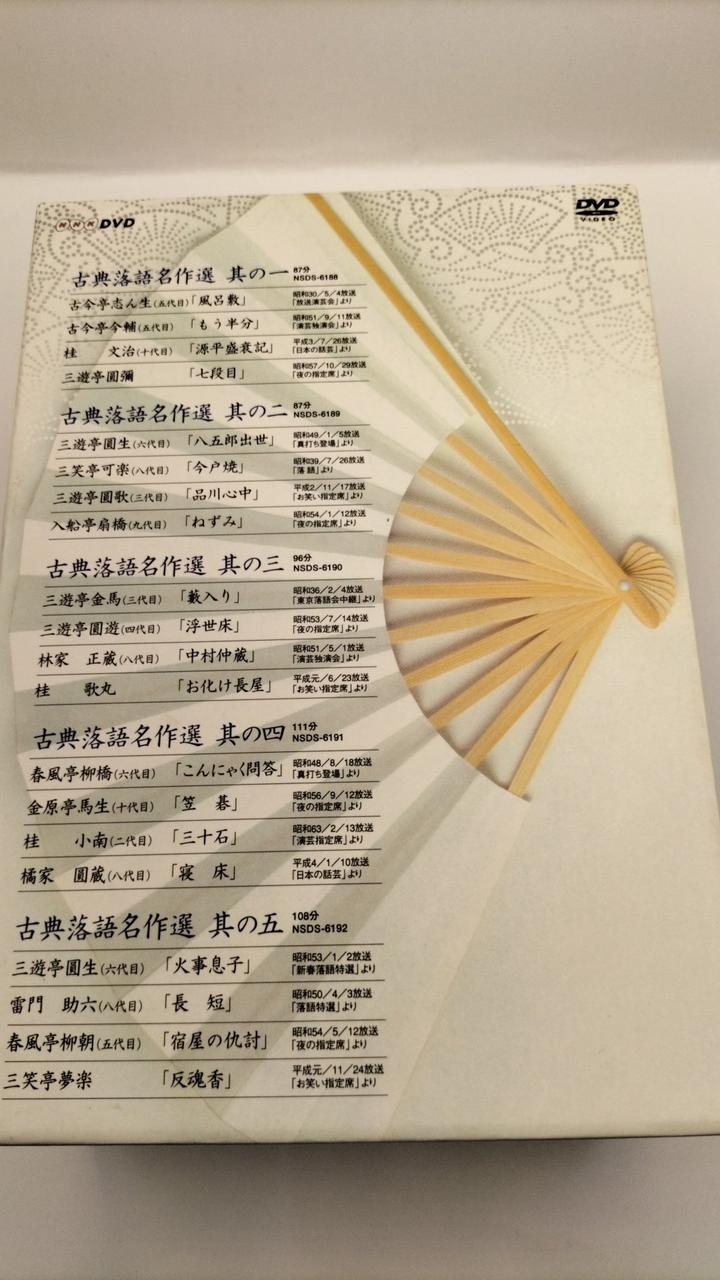 NHK DVD
DVD
VIDEO
古典落語名作選 其の一 87分 NSDS-6188
古今亭志ん生(五代目)「風呂敷」 昭和30/5/4放送「放送演芸会」より
古今亭今輔(五代目)「もう半分」 昭和51/9/11放送「演芸独演会」より
桂 文治(十代目)「源平盛衰記」 平成3/7/26放送「日本の話芸」より
三遊亭圓彌 「七段目」 昭和57/10/29放送「夜の指定席」より
古典落語名作選 其の二 87分 NSDS-6189
三遊亭圓生(六代目)「八五郎出世」 昭和49/1/5放送「真打ち登場」より
三笑亭可楽(八代目)「今戸焼」 昭和39/7/26放送「落語」より
三遊亭圓歌(三代目)「品川心中」 平成2/11/17放送「お笑い指定席」より
入船亭扇橋(九代目)「ねずみ」 昭和54/1/12放送「夜の指定席」より
古典落語名作選 其の三 96分 NSDS-6190
三遊亭金馬(三代目)「藪入り」 昭和36/2/4放送「東京落語会中継」より
三遊亭圓遊(四代目)「浮世床」 昭和53/7/14放送「夜の指定席」より
林家 正蔵(八代目)「中村仲蔵」 昭和51/5/1放送「演芸独演会」より
桂 歌丸 「お化け長屋」 平成元/6/23放送「お笑い指定席」より
古典落語名作選 其の四 111分 NSDS-6191
春風亭柳橋(六代目)「こんにゃく問答」 昭和48/8/18放送「真打ち登場」より
金原亭馬生(十代目)「笠 碁」 昭和56/9/12放送「夜の指定席」より
桂 小南(二代目)「三十石」 昭和63/2/13放送「演芸指定席」より
橘家 圓蔵(八代目)「寝 床」 平成4/1/10放送「日本の話芸」より
古典落語名作選 其の五 108分 NSDS-6192
三遊亭圓生(六代目)「火事息子」 昭和53/1/2放送「新春落語特選」より
雷門 助六(八代目)「長 短」 昭和50/4/3放送「落語特選」より
春風亭柳朝(五代目)「宿屋の仇討」 昭和54/5/12放送「夜の指定席」より
三笑亭夢楽 「反魂香」 平成元/11/24放送「お笑い指定席」より